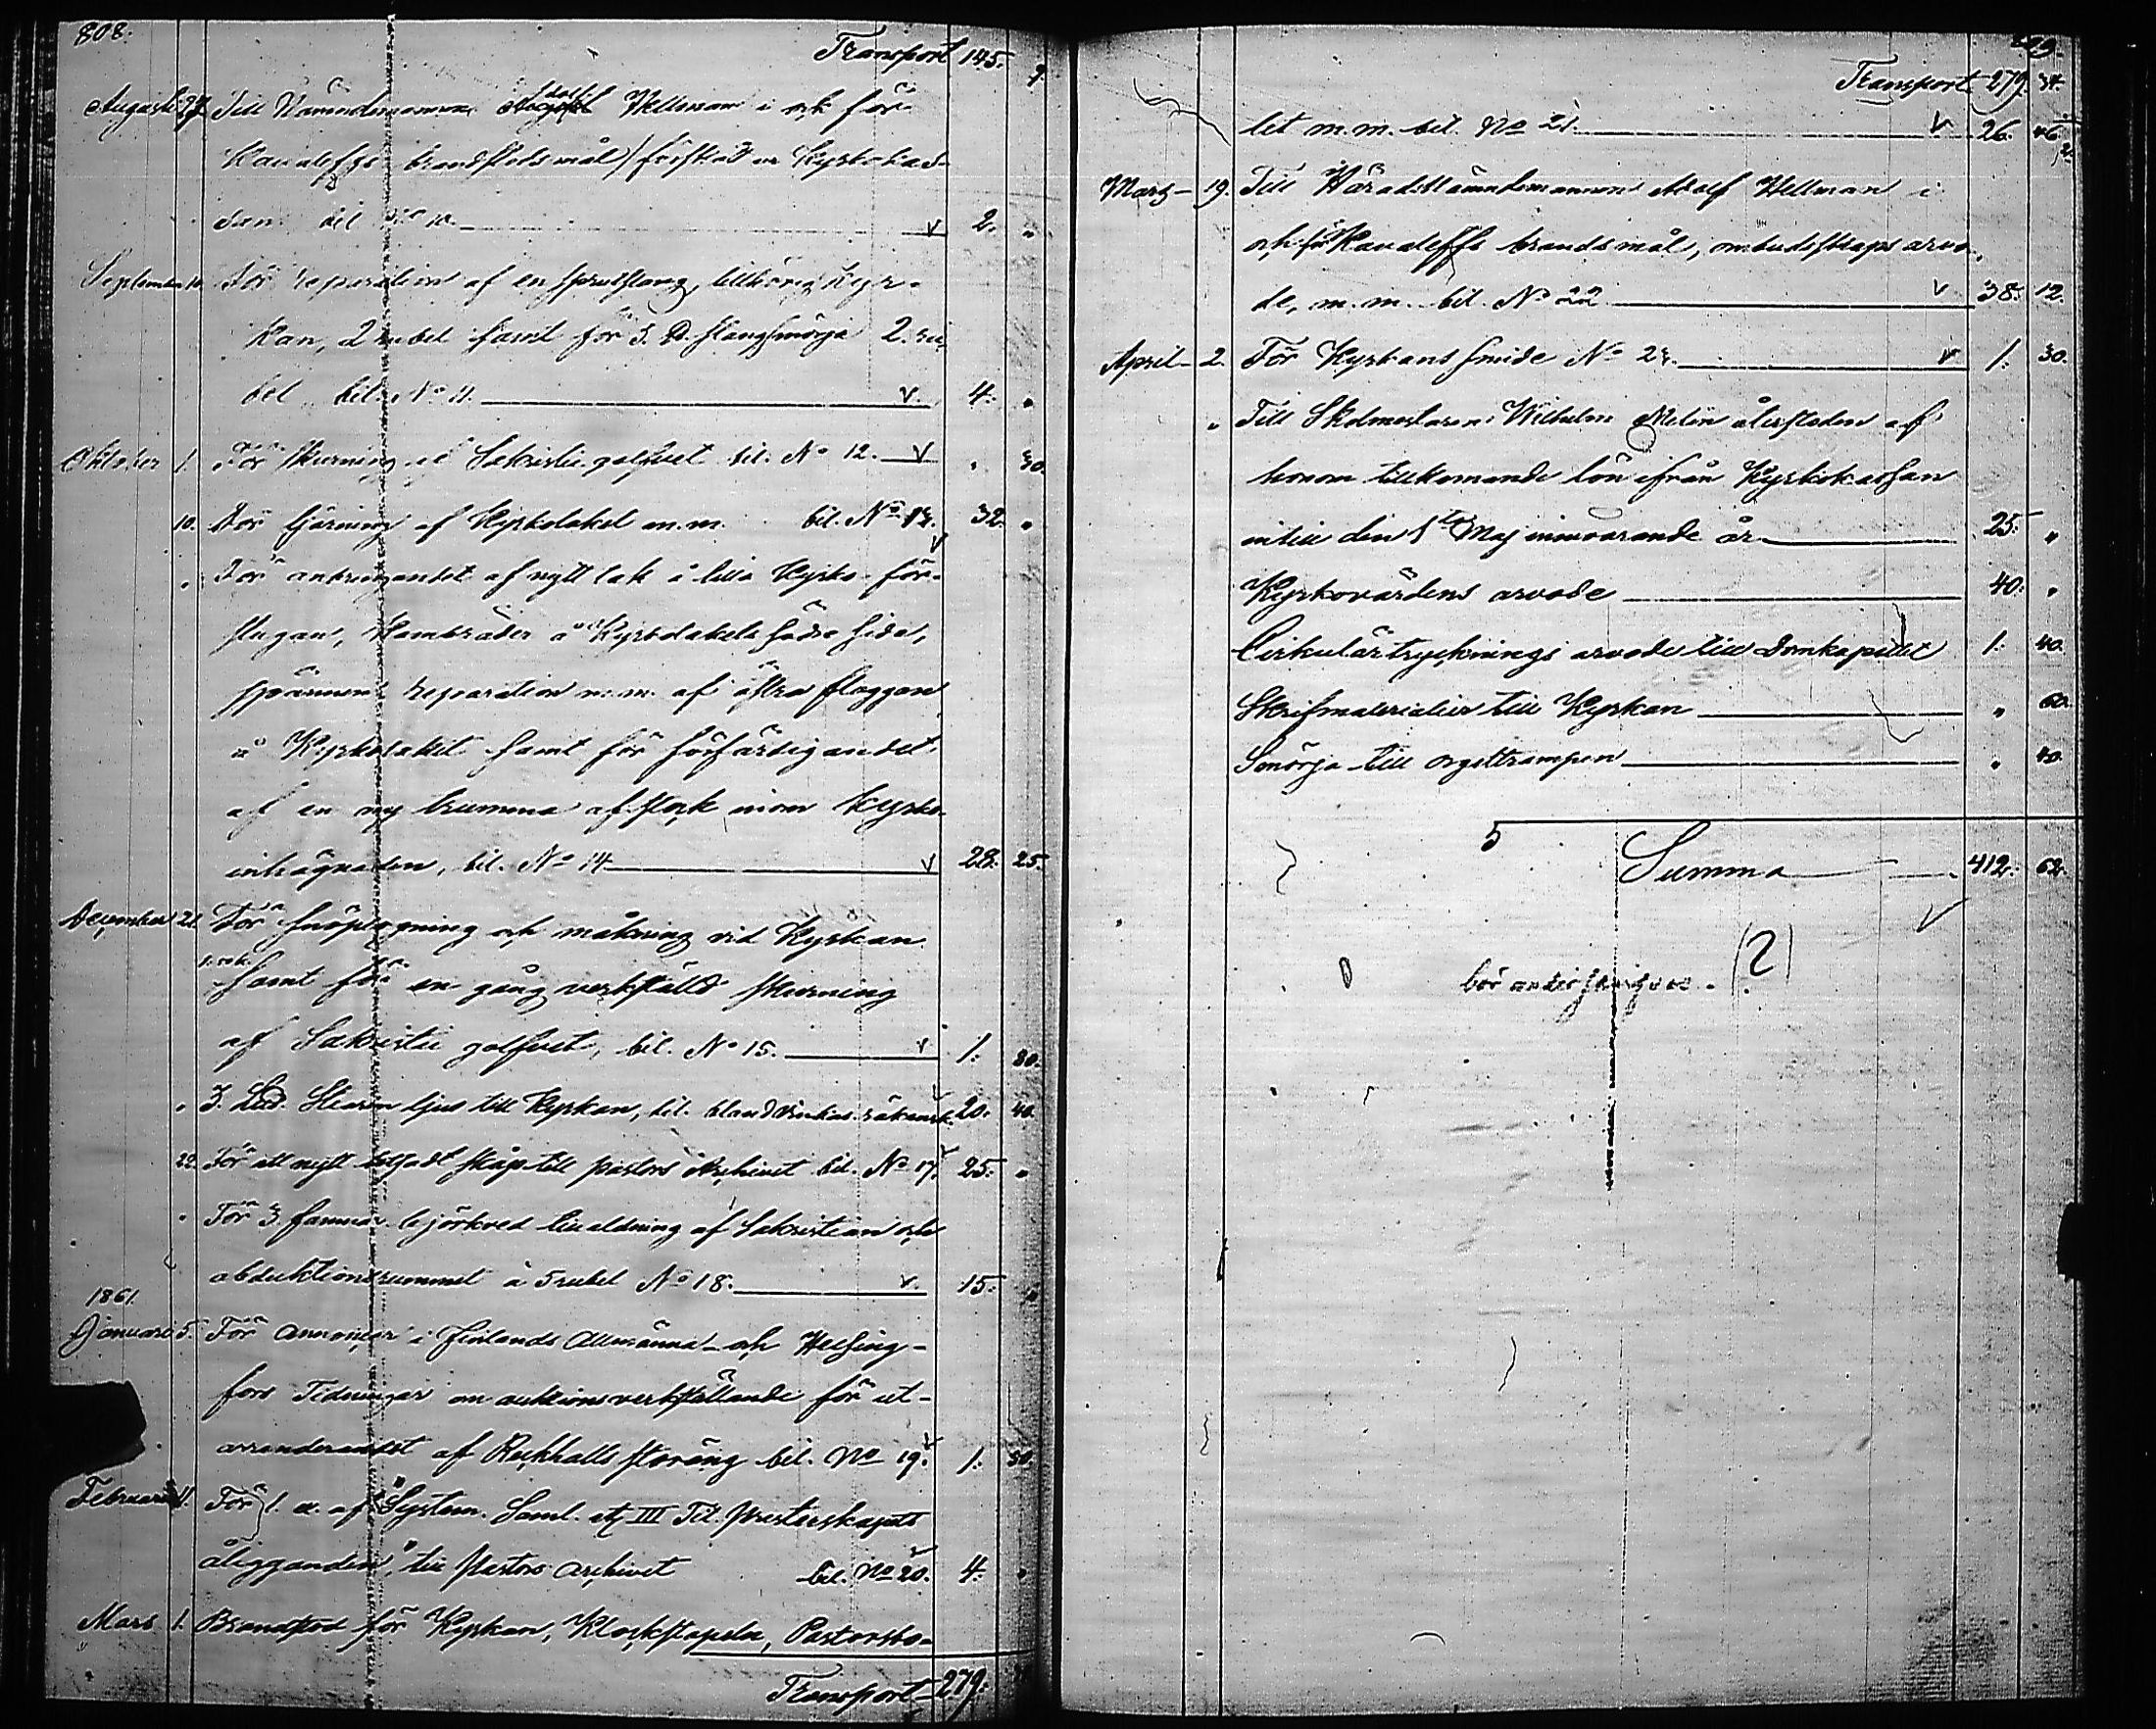 808.
Transport 145. 9.
Augusti 27. Till Nämndemannen Adolf Hellman i och för
Kavaleffs brandstodsmål förskott ur Kyrkokas-
san bil N:o 10. 2. "
September 10. För reparation af en sprutslang, tillhörig Kyr-
kan, 2 rubel samt för 3. ℔. slangsmörja 2. ru-
bel bil. N:o 11. 4. "
Oktober 1. För skurning af Sakristie golfvet bil. N:o 12. " 30.
10. För tjärning af Kyrkotaket m.m. bil. N:o 13. 32. "
" För anbringandet af nytt tak å lilla Kyrko för-
stugan, vambräder å Kyrkotakets södra sida,
spännens reparation m.m. af östra flaggan
å Kyrkotaket samt för förfärdigandet
af en ny trumma af stock inom Kyrko-
inhägnaden, bil. N:o 14 28. 25.
December 21. För snöplogning och måkning vid Kyrkan
1. rub.
samt för en gång verkställd skurning
af Sakristie golfvet, bil. N:o 15. 1. 30.
" 3. Lisd. Stearin ljus till Kyrkan, bil. bland vinkas. räkensk. 20. 40.
22. För ett nytt skåp till pastors Archivet bil. N:o 17. 25. "
" För 3 famnar björkved till eldning af Sakristian och
abduktionsrummet à 5 rubel N:o 18. 15. "
1861.
Januari 5. För annoncer i Finlands Allmänna och Helsing-
fors Tidningar om auktionsverkställande för ut-
arrenderandet af Rockhalls storäng bil. N:o 19. 1. 30.
Februari 11. För 1. ex. af "System. Saml. etc III Til. Presterskapets
åligganden", till Pastors archivet bil. N:o 20. 4. "
Mars 1. Brandstod för Kyrkan, Klockstapeln, Pastorsbo-
Transport 279.
Transport 279. 34.
let m.m. bil. N:o 21. 26. 46.
Mars 19. Till Häradsnämndemannen Adolf Hellman i
och för Kavaleffs brandsmål, ombudsskaps arvo-
de, m.m. bil. N:o 22 38. 12.
April 2. För Kyrkans smide N:o 23. 1. 30.
" Till Skolmästaren Wilhelm Melin återstoden af
honom tillkommande lön ifrån Kyrkokassan
intill den 1:ta Maj innevarande år 25. "
Kyrkovärdens arvode 40. "
Cirkulärtrycknings arvode till Domkapitlet 1. 40.
Skrifmaterialier till Kyrkan " 60.
Smörja till orgeltrampen " 40.
Summa 412. 62.
bör underskrifvas. (?)